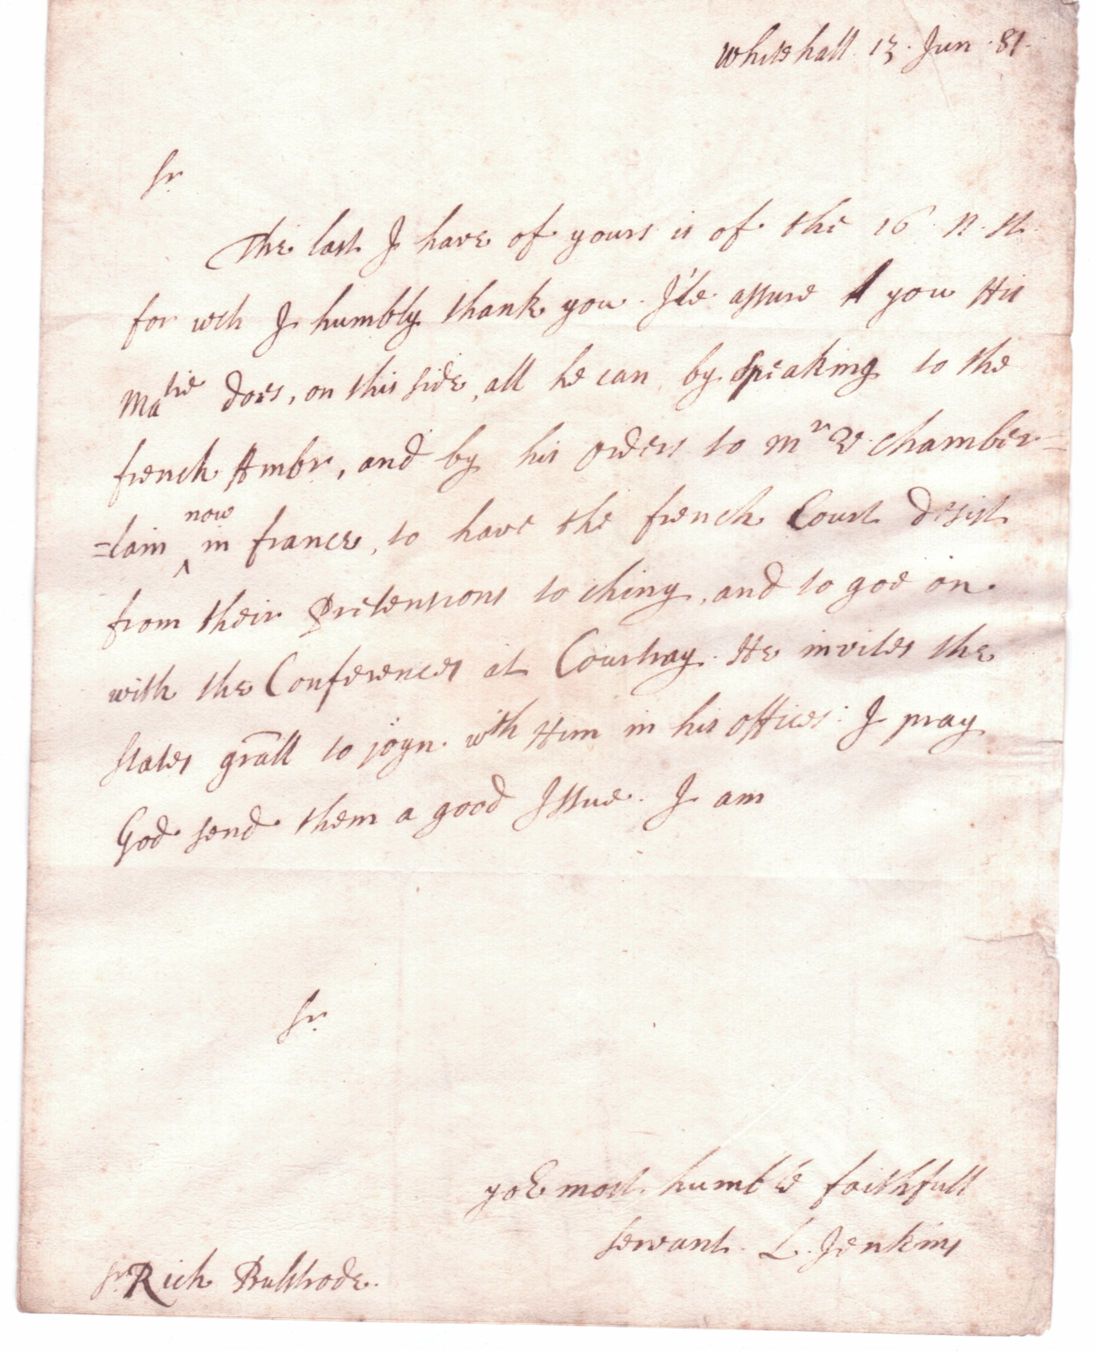 Whitehall 13. Jun. 81.
Sr
The last I have of yours is of the 16 N. St.
for wch I humbly thank you. I'le assure you His
Matie does, on this side, all he can by speaking to the
french Ambr, and by his orders to Mr V. Chamber=
=lain now in france, to have the french Court desist
from their Pretensions to Chiny, and to goe on
with the Conferences at Courtray. He invites the
States grall to joyn wth Him in his offices: I pray
God send them a good Issue. I am
Sr
yor most humble faithfull
servant. L. Jenkins
Sr Rich Bulstrode.